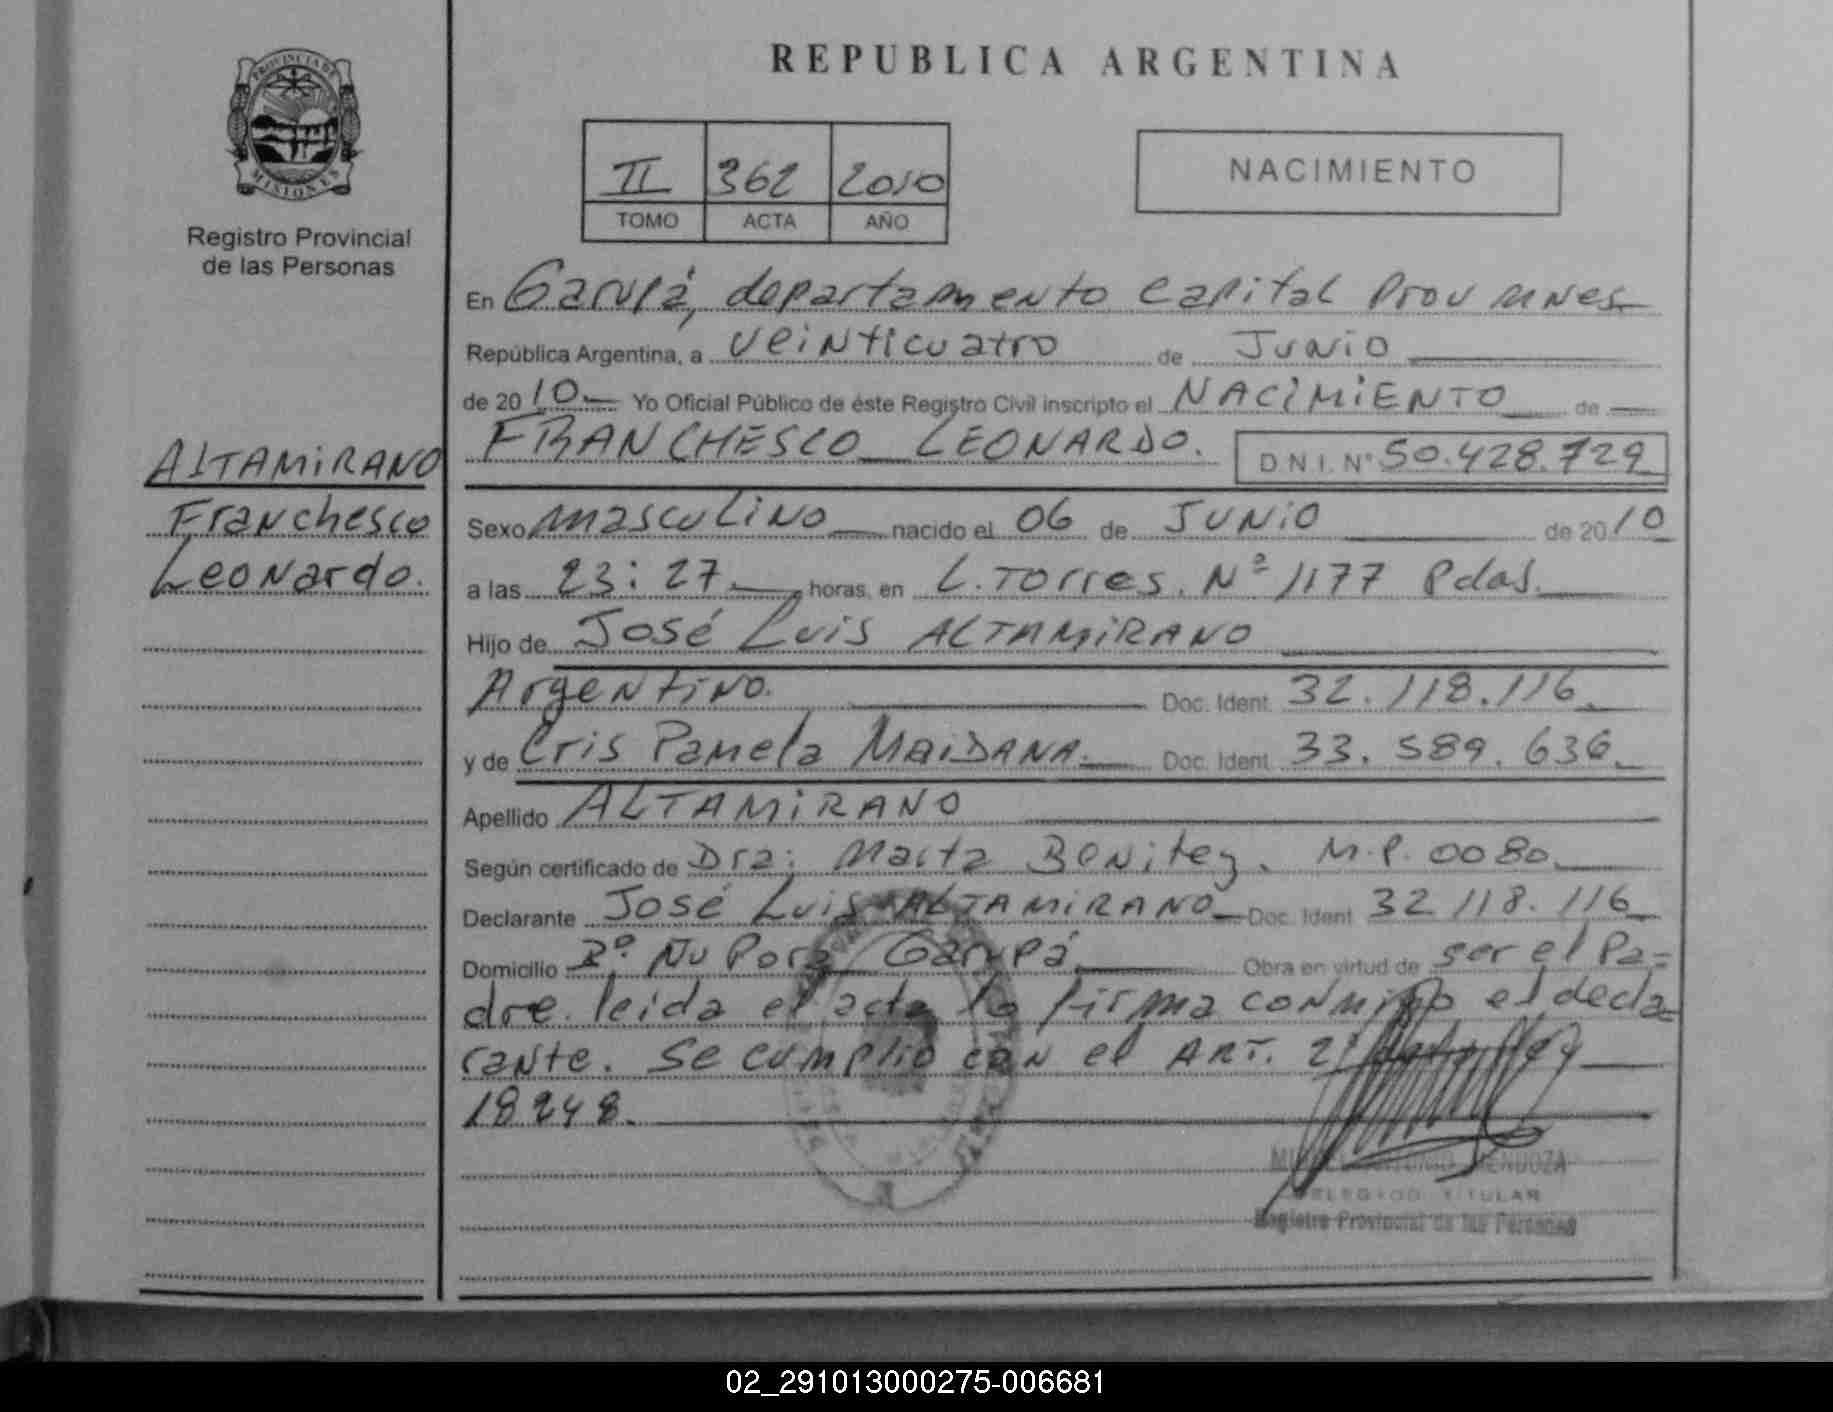 PROVINCIA DE
MISIONES
Registro Provincial
de las Personas
ALTAMIRANO
Franchesco
Leonardo.
REPUBLICA ARGENTINA
II 362 2010
TOMO ACTA AÑO
NACIMIENTO
En Garupá, departamento Capital Prov Mnes
República Argentina, a veinticuatro de Junio
de 2010 Yo Oficial Público de éste Registro Civil inscripto el NACIMIENTO de
FRANCHESCO LEONARDO. D N.I. Nº 50.428.729
Sexo masculino nacido el 06 de JUNIO de 2010
a las 23:27 horas, en L. Torres. Nº 1177 Pdas.
Hijo de José Luis ALTAMIRANO
Argentino. Doc. Ident 32.118.116
y de Cris Pamela MAIDANA. Doc. Ident 33.589.636
Apellido ALTAMIRANO
Según certificado de Dra: Marta Benitez. M.P. 0080
Declarante José Luis ALTAMIRANO Doc. Ident 32 118.116
Domicilio Bº. Ñu Pora Garupá Obra en virtud de ser el Pa=
dre. leida el acta la firma conmigo el decla=
rante. Se cumplio con el ART. 2º
18248.
MENDOZA
DELEGADO TITULAR
Registro Provincial de las Personas
02_291013000275-006681